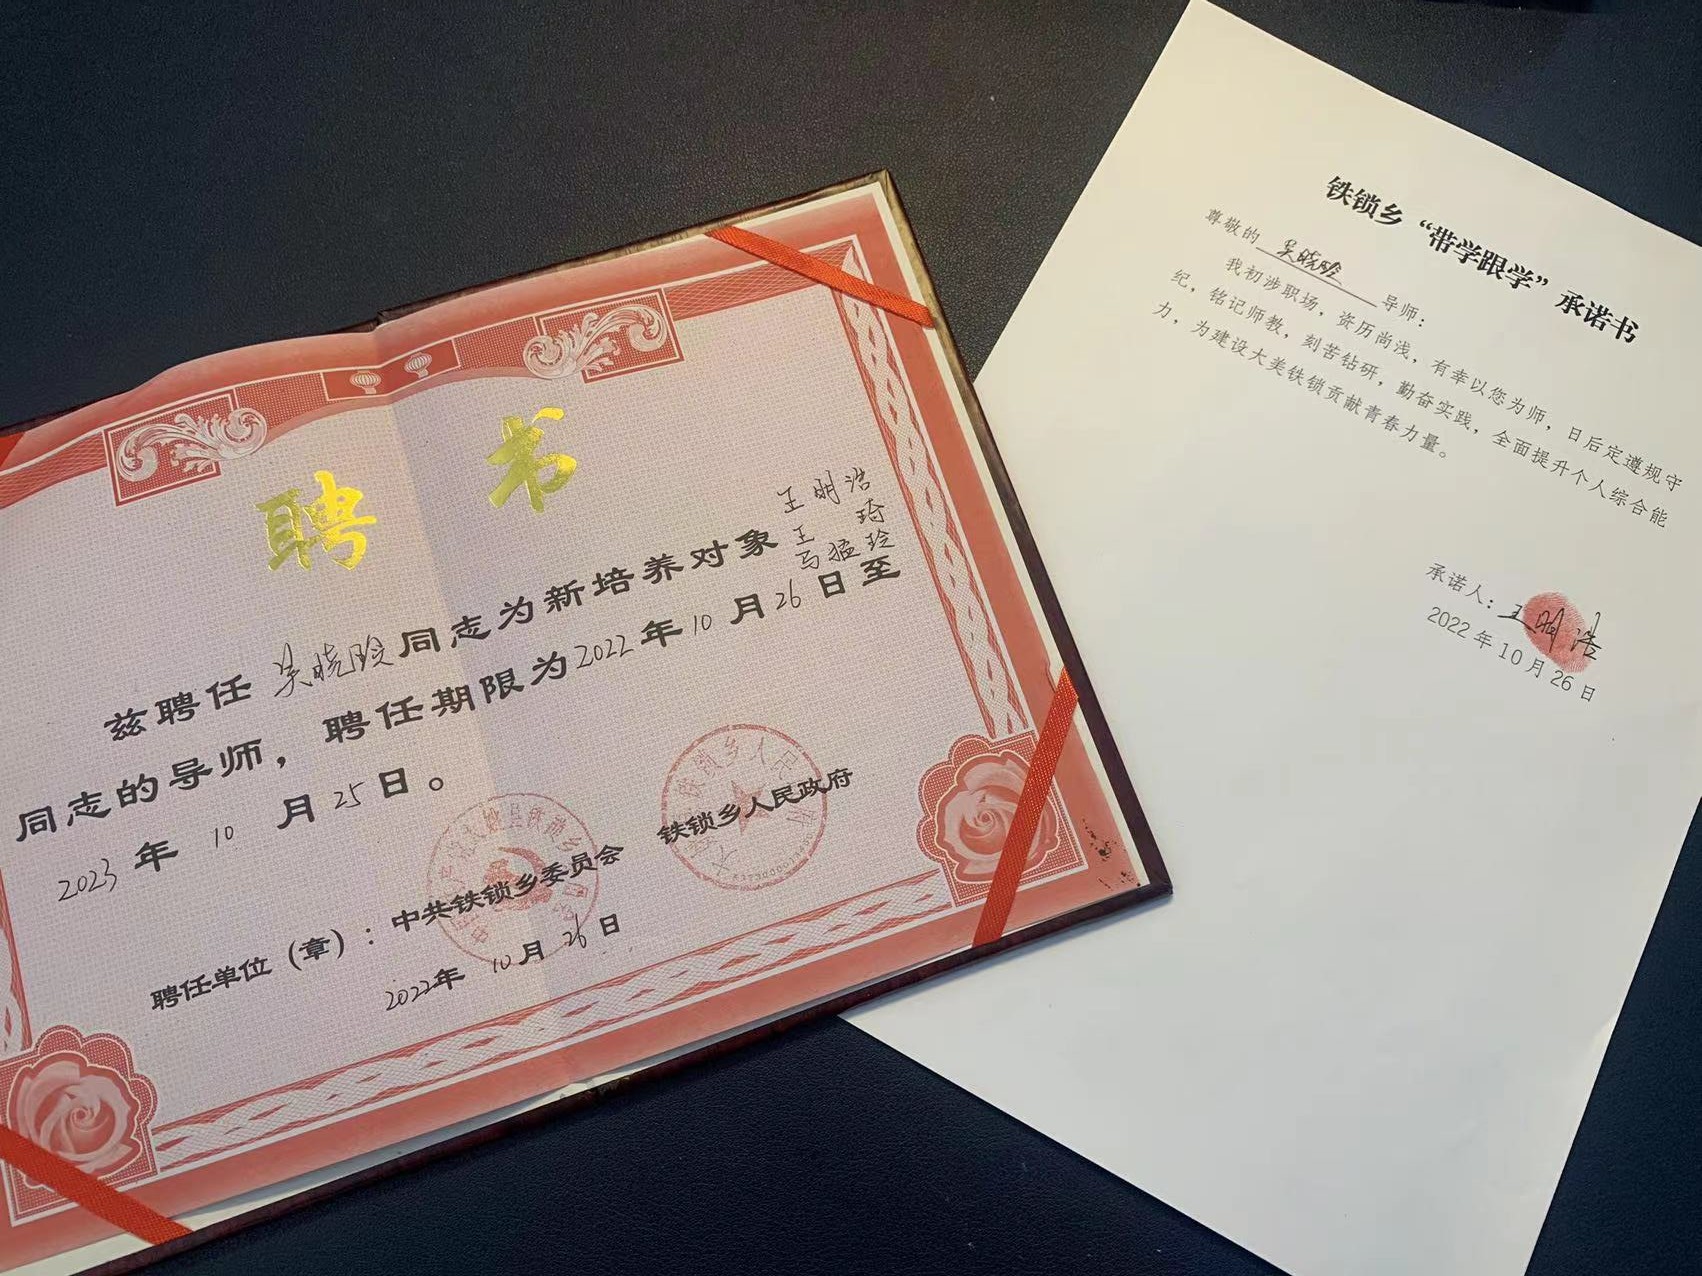 聘 书
王明浩
王 琦
马猛玲
兹聘任 吴晓玲 同志为新培养对象
同志的导师，聘任期限为2022年10月26日至
2023年10月25日。
聘任单位（章）：中共铁锁乡委员会 铁锁乡人民政府
2022年10月26日
铁锁乡“带学跟学”承诺书
尊敬的 吴晓玲 导师：
我初涉职场，资历尚浅，有幸以您为师，日后定遵规守
纪，铭记师教，刻苦钻研，勤奋实践，全面提升个人综合能
力，为建设大美铁锁贡献青春力量。
承诺人：王明浩
2022年10月26日